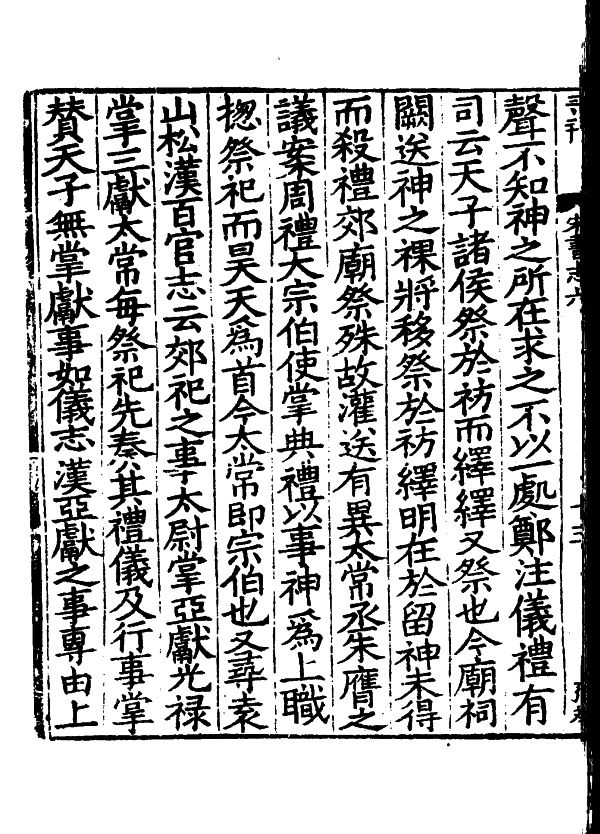 宋書志六
聲不知神之所在求之不以一處鄭注儀禮有
司云天子諸侯祭於祊而繹繹又祭也今廟祠
闕送神之祼將移祭於祊繹明在於留神未得
而殺禮郊廟祭殊故灌送有異太常丞朱膺之
議案周禮大宗伯使掌典禮以事神爲上職
揔祭祀而昊天爲首今太常即宗伯也又尋袁
山松漢百官志云郊祀之事太尉掌亞獻光祿
掌三獻太常每祭祀先奏其禮儀及行事掌
贊天子無掌獻事如儀志漢亞獻之事專由上